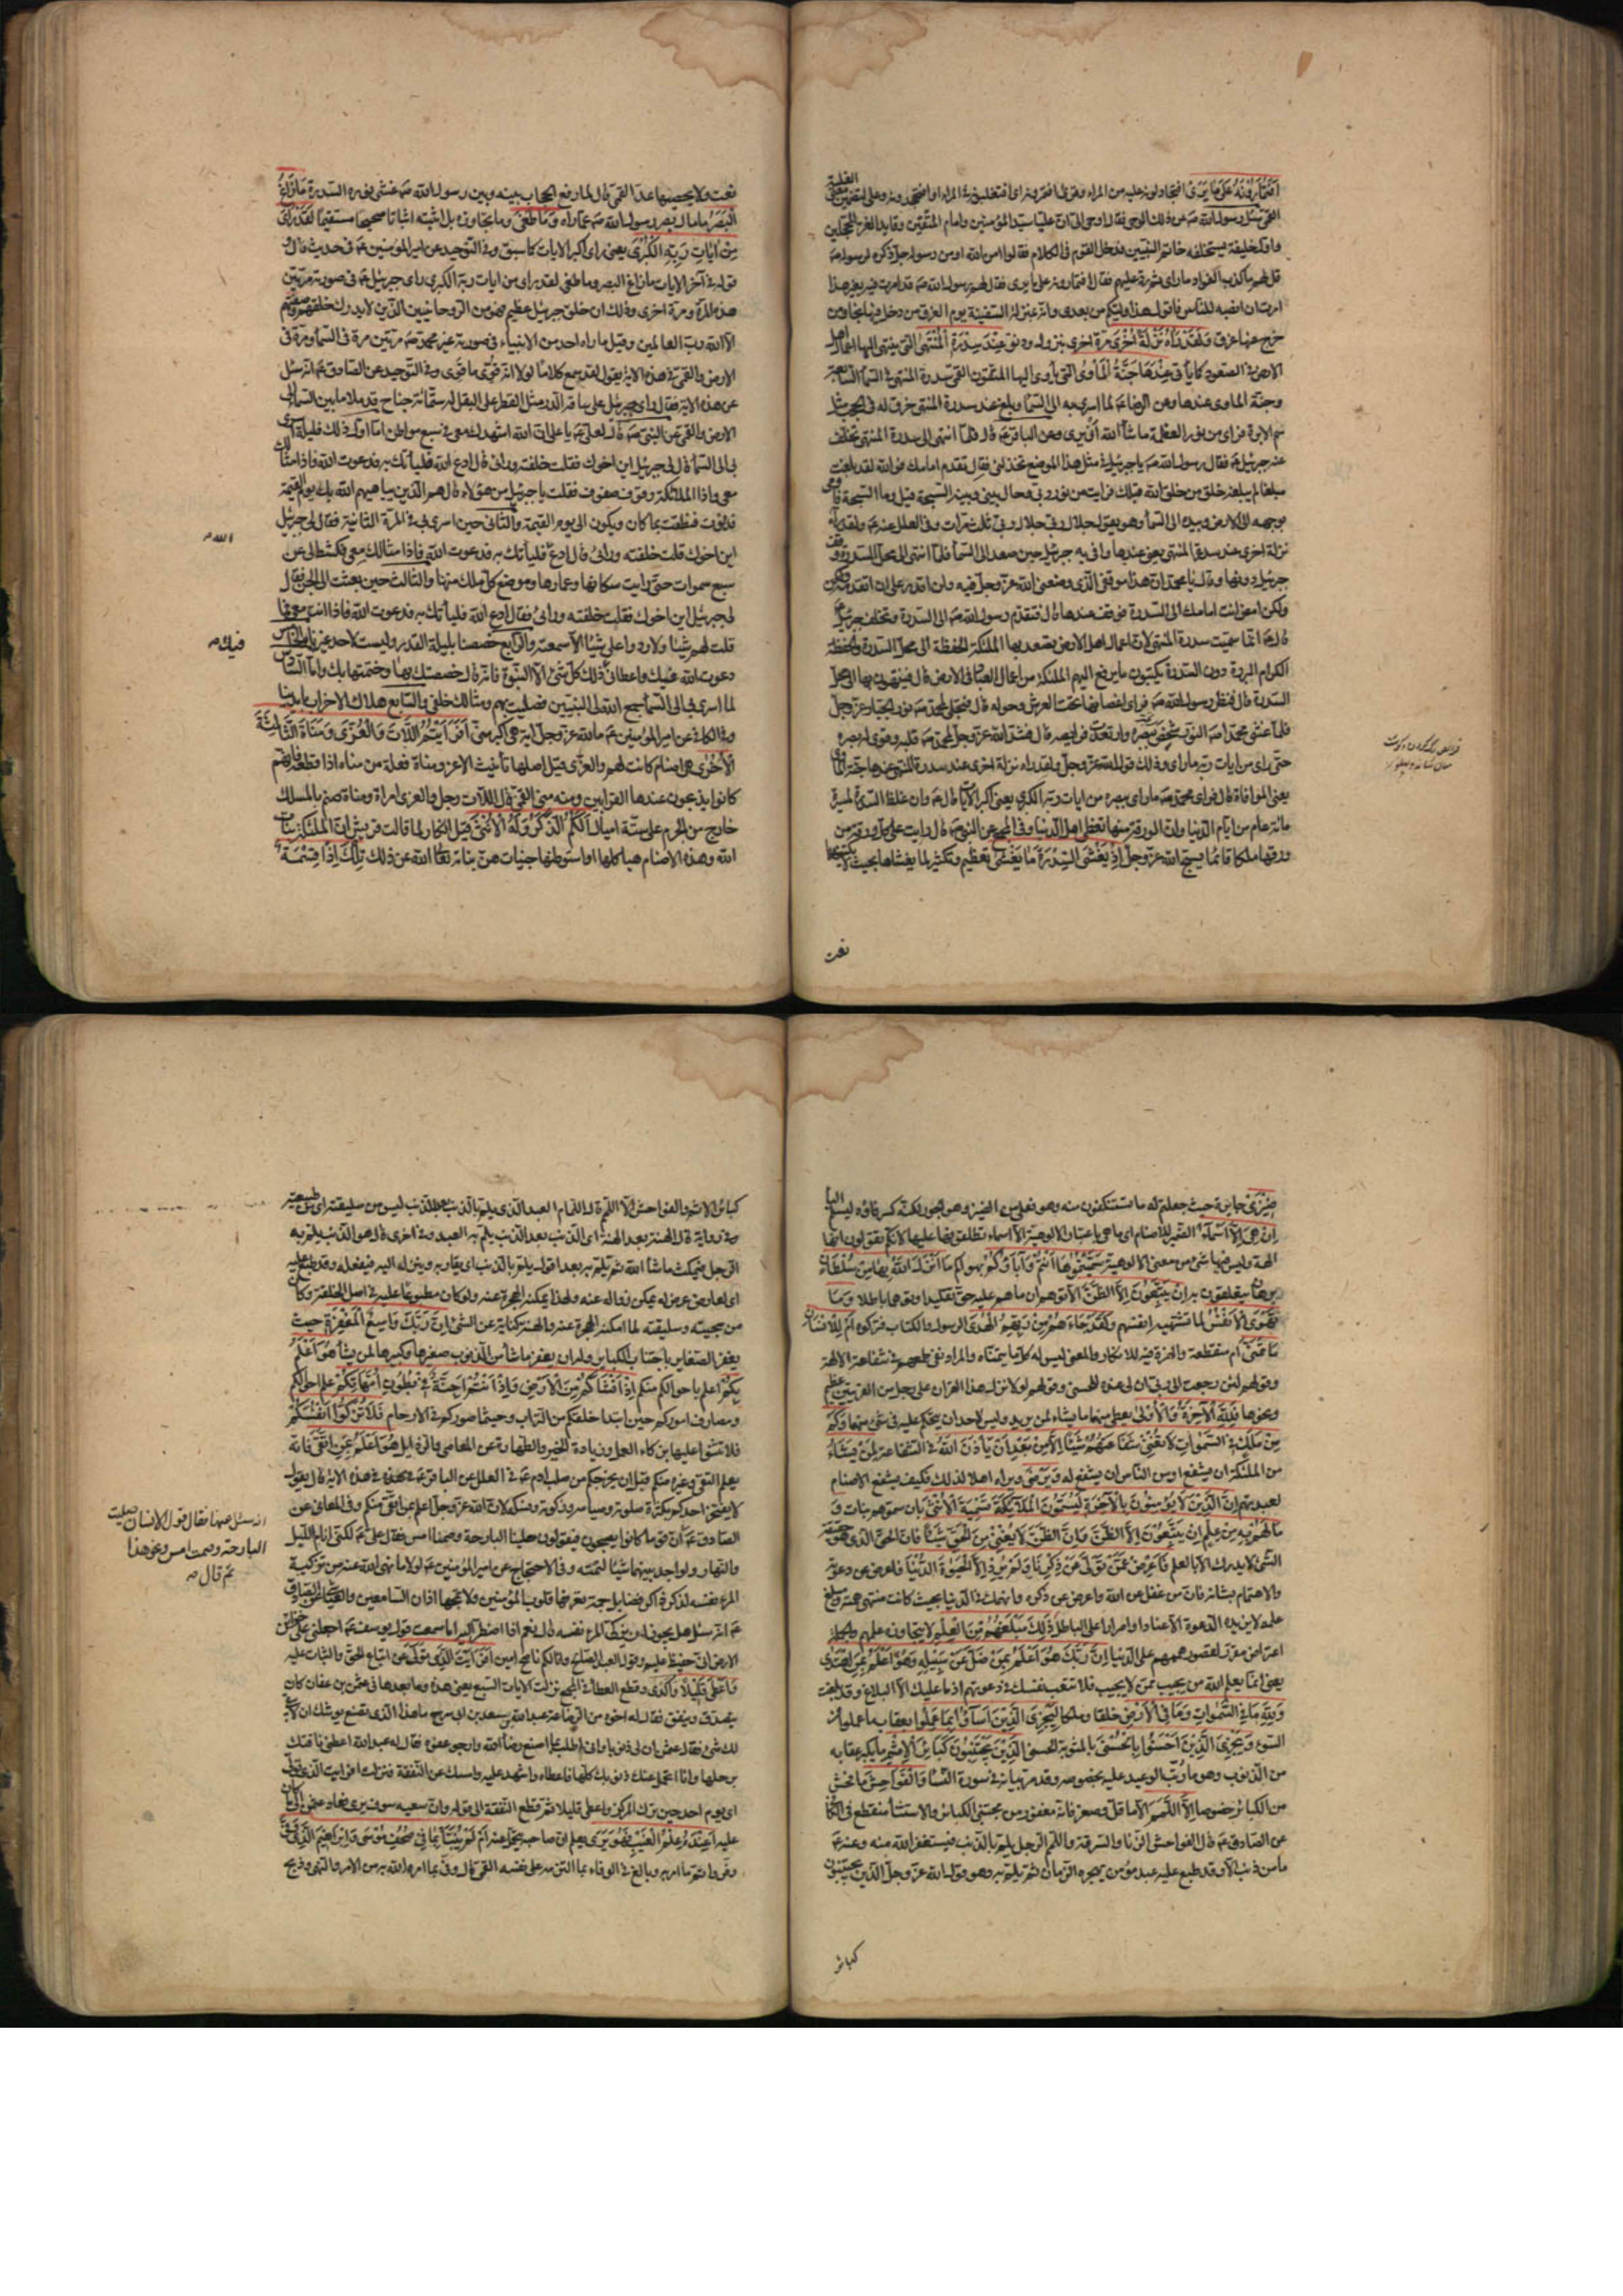 أفتمارونه على ما يرى افتجادلونه عليه من المراء وقرئ افتمرونه اى افتغلبونه فى المراء او افتجحدونه وعلى لتضمين معنى الغلبة
القمى سئل رسول الله صه عن ذلك الوحى فقال اوحى الى ان عليا سيد المؤمنين وامام المتقين وقايد الغر المحجلين
واول خليفة يستخلفه خاتم النبيين فدخل القوم فى الكلام فقالوا امن الله او من رسوله فقال الله جل ذكره لرسوله صه
قل لهم ما كذب الفؤاد ما رأى ثم رد عليهم فقال افتمارونه على ما يرى فقال لهم رسول الله صه قد امرت فيه بغير هذا
امرت ان انصبه للناس فاقول هذا وليكم من بعدى وانه بمنزلة السفينة يوم الغرق من دخل فيها نجا ومن
خرج عنها غرق ولقد رآه نزلة أخرى مرة اخرى بنزول ودنو عند سدرة المنتهى التى ينتهى اليها اعمال اهل
الارض فى الصعود كما يأتى عندها جنة المأوى التى يأوى اليها المتقون القمى سدرة المنتهى فى السماء السابعة
وجنة الماوى عندها وعن الرضا عه لما اسرى به الى السماء وبلغ عند سدرة المنتهى خرق له فى الحجب مثل
سم الابرة فراى من نور العظمة ما شاء الله ان يرى وعن الباقر عه قال فلما انتهى الى سدرة المنتهى تخلف
عنه جبرئيل عه فقال رسول الله صه يا جبرئيل فى مثل هذا الموضع تخذلنى فقال تقدم امامك فوالله لقد بلغت
مبلغا لم يبلغه خلق من خلق الله قبلك فرايت من نور ربى وحال بينى وبينه السبحة قيل وما السبحة فاومى
بوجهه الى الارض وبيده الى السماء وهو يقول جلال ربى جلال ربى ثلث مرات وفى العلل عنه عه ولقد رآه
نزلة اخرى عند سدرة المنتهى يعنى عندها وافى به جبرئيل حين صعد الى السماء فلما انتهى الى محل السدرة وقف
جبرئيل دونها وقال يا محمد ان هذا موقفى الذى وضعنى الله عز وجل فيه ولن اقدر على ان اتقدمه
ولكن امض انت امامك الى السدرة فوقف عندها قال فتقدم رسول الله صه الى السدرة وتخلف جبرئيل
قال عه انما سميت سدرة المنتهى لان اعمال اهل الارض يصعد بها الملئكة الحفظة الى محل السدرة والحفظة
الكرام البررة دون السدرة يكتبون ما يرفع اليهم الملئكة من اعمال العباد فى الارض قال فينتهون بها الى محل
السدرة قال فنظر رسول الله صه فراى اغصانها تحت العرش وحوله قال فتجلى لمحمد صه نور الجبار عز وجل
فلما غشى محمدا صه النور شخص ببصره وارتعدت فرايصه قال فشد الله عز وجل لمحمد صه قلبه وقوى له بصره
حتى راى من ايات ربه ما راى وذلك قول الله عز وجل ولقد راه نزلة اخرى عند سدرة المنتهى عندها جنة الماوى
يعنى الموافاة قال فراى محمد صه ما راى ببصره من ايات ربه الكبرى يعنى اكبر الآيات قال عه وان غلظ السدرة لمسيرة
مائة عام من ايام الدنيا وان الورقة منها تغطى اهل الدنيا وفى المجمع عن النبى صه قال رايت على كل ورقة من
ورقها ملكا قائما يسبح الله عز وجل إذ يغشى السدرة ما يغشى تعظيم وتكثير لما يغشاها بحيث لا يكتنهها
نعت
نعت ولا يحصيها عد القمى قال لما رفع الحجاب بينه وبين رسول الله صه غشى نوره السدرة ما زاغ
البصر ما مال بصر رسول الله صه عما راه وما طغى وما تجاوزه بل اثبته اثباتا صحيحا مستقيما لقد رأى
من آيات ربه الكبرى يعنى راى اكبر الايات كما سبق وفى التوحيد عن امير المؤمنين عه فى حديث قال
قوله فى آخر الايات ما زاغ البصر وما طغى لقد راى من ايات ربه الكبرى راى جبرئيل عه فى صورته مرتين
هذه المرة ومرة اخرى وذلك ان خلق جبرئيل عظيم فهو من الروحانيين الذين لا يدرك خلقهم وصفتهم
الا الله رب العالمين وقيل ما راه احد من الانبياء فى صورته غير محمد صه مرتين مرة فى السماء ومرة فى
الارض والقمى فى هذه الاية يقول لقد سمع كلاما لولا انه قوى ما قوى وفى التوحيد عن الصادق عه انه سئل
عن هذه الاية فقال راى جبرئيل على ساقه الدر مثل القطر على البقل له ستمائة جناح قد ملا ما بين السماء الى
الارض والقمى عن النبى صه قال لعلى عه يا على ان الله اشهدك معى فى سبع مواطن اما اول ذلك فليلة اسرى
بى الى السماء قال لى جبرئيل اين اخوك فقلت خلفته ورائى قال ادع الله فليأتك به فدعوت الله واذا مثالك
معى واذا الملائكة وقوف صفوف فقلت يا جبرئيل من هؤلاء قال هم الذين يباهيهم الله بك يوم القيمة
فدنوت فنطقت بما كان ويكون الى يوم القيمة والثانى حين اسرى بى فى المرة الثانية فقال لى جبرئيل
اين اخوك قلت خلفته ورائى قال ادع فليأتك به فدعوت الله فاذا مثالك معى فكشط لى عن
الله صه
سبع سموات حتى رايت سكانها وعمارها وموضع كل ملك منها والثالث حين بعثت الى الجن فقال
لى جبرئيل اين اخوك فقلت خلفته ورائى فقال ادع الله فليأتك به فدعوت الله فاذا انت معى فما
قلت لهم شيئا ولا ردوا على شيئا الا سمعته والرابع خصصنا بليلة القدر وليست لاحد غيرنا والخامس
فيك صه
دعوت الله فيك واعطانى ذلك كل شئ الا النبوة فانه قال خصصتك بها وختمتها بك واما السادس
لما اسرى بى الى السماء جمع الله لى النبيين فصليت بهم ومثالك خلفى والسابع هلاك الاحزاب بايدينا
وفى الكافى عن امير المؤمنين عه ما لله عز وجل آية هى اكبر منى أفرأيتم اللات والعزى ومناة الثالثة
الأخرى هى اصنام كانت لهم والعزى قيل اصلها تأنيث الاعز ومناة فعلة من مناه اذا قطعه فانهم
كانوا يذبحون عندها القرابين ومنه منى القمى قال اللات رجل والعزى امراة ومناة صنم بالمسلك
خارج من الحرم على ستة اميال ألكم الذكر وله الأنثى قيل انكار لما قالت قريش ان الملئكة بنات
الله وهذه الاصنام هياكلها او استوطنها جنيات هن بناته تعالى الله عن ذلك تلك إذا قسمة
ضيزى جايرة حيث جعلتم له ما تستنكفون منه وهو فعلى من الضيز وهو الجور لكنه كسر فاؤه ليسلم الياء
إن هى إلا أسماء الضمير للاصنام اى ما هى باعتبار الالوهية الا اسماء تطلقونها عليها لانكم تقولون انها
الهة وليس فيها شئ من معنى الالوهية سميتموها أنتم وآباؤكم بهواكم ما أنزل الله بها من سلطان
برهان يتعلقون به إن يتبعون إلا الظن الا توهم ان ما هم عليه حق تقليدا وتوهما باطلا وما
تهوى الأنفس لما تشتهيه انفسهم ولقد جاءهم من ربهم الهدى الرسول والكتاب فتركوه أم للإنسان
ما تمنى ام منقطعة والهمزة فيه للانكار والمعنى ليس له كل ما يتمناه والمراد نفى طمعهم فى شفاعة الالهة
وقولهم لئن رجعت الى ربى ان لى عنده للحسنى وقولهم لولا نزل هذا القران على رجل من القريتين عظيم
ونحوها فلله الآخرة والأولى يعطى منهما ما يشاء لمن يريد وليس لاحد ان يحكم عليه فى شئ منهما وكم
من ملك فى السموات لا تغنى شفاعتهم شيئا إلا من بعد أن يأذن الله فى الشفاعة لمن يشاء
من الملئكة ان يشفع او من الناس ان يشفع له ويرضى ويراه اهلا لذلك فكيف يشفع الاصنام
لعبدتهم إن الذين لا يؤمنون بالآخرة ليسمون الملائكة تسمية الأنثى بان سموهم بنات و
ما لهم به من علم إن يتبعون إلا الظن وإن الظن لا يغنى من الحق شيئا فان الحق الذى هو حقيقة
الشئ لا يدرك الا بالعلم فأعرض عمن تولى عن ذكرنا ولم يرد إلا الحيوة الدنيا فاعرض عن دعوته
والاهتمام بشانه فان من غفل عن الله واعرض عن ذكره وانهمك فى الدنيا بحيث كانت منتهى همته ومبلغ
علمه لا يزيده الدعوة الا عنادا واصرارا على الباطل ذلك مبلغهم من العلم لا يتجاوزه علمهم والجملة
اعتراض مقرر لقصور هممهم على الدنيا إن ربك هو أعلم بمن ضل عن سبيله وهو أعلم بمن اهتدى
يعنى انما يعلم الله من يجيب ممن لا يجيب فلا تتعب نفسك فى دعوتهم اذ ما عليك الا البلاغ وقد بلغت
ولله ما فى السموات وما فى الأرض خلقا وملكا ليجزى الذين أساؤا بما عملوا بعقاب ما عملوا من
السوء ويجزى الذين أحسنوا بالحسنى بالمثوبة الحسنى الذين يجتنبون كبائر الإثم ما يكبر عقابه
من الذنوب وهو ما رتب الوعيد عليه بخصوصه وقد مر بيانه فى سورة النساء والفواحش ما فحش
من الكبائر خصوصا إلا اللمم الا ما قل وصغر فانه مغفور من مجتنبى الكبائر والاستثناء منقطع فى الكافى
عن الصادق عه قال الفواحش الزنا والسرقة واللمم الرجل يلم بالذنب فيستغفر الله منه وعنه عه
ما من ذنب الا وقد طبع عليه عبد مؤمن يهجره الزمان ثم يلم به وهو قول الله عز وجل الذين يجتنبون
كبائر
كبائر الاثم والفواحش الا اللمم قال اللمام العبد الذى يلم بالذنب بعد الذنب ليس من سليقته اى من طبيعته
وفى رواية قال الهنة بعد الهنة اى الذنب بعد الذنب يلم به العبد وفى اخرى قال هو الذنب يلم به
الرجل فيمكث ما شاء الله ثم يلم به بعد اقول يلم بالذنب اى يقاربه وينزل اليه فيفعله وقد طبع عليه
اى لعارض عرض له يمكن زواله عنه ولهذا يمكنه الهجرة عنه ولو كان مطبوعا عليه فى اصل الخلقة وكان
من سجيته وسليقته لما امكنه الهجرة عنه والهنة كناية عن الشئ إن ربك واسع المغفرة حيث
يغفر الصغاير باجتناب الكباير وله ان يغفر ما شاء من الذنوب صغيرها وكبيرها لمن يشاء هو أعلم
بكم اعلم باحوالكم منكم إذ أنشأكم من الأرض وإذ أنتم أجنة فى بطون أمهاتكم علم احوالكم
ومصارف اموركم حين ابتداء خلقكم من التراب وحيثما صوركم فى الارحام فلا تزكوا أنفسكم
فلا تثنوا عليها بزكاء العمل وزيادة الخير والطهارة عن المعاصى والرذايل هو أعلم بمن اتقى فانه
يعلم التقى وغيره منكم قبل ان يخرجكم من صلب ادم عه فى العلل عن الباقر عه فى هذه الاية قال يقول
لا يفتخر احدكم بكثرة صلوته وصيامه وزكوته ونسكه لان الله عز وجل اعلم بمن اتقى منكم وفى المعانى عن
الصادق عه ان قوما كانوا يصبحون فيقولون صلينا البارحة وصمنا امس فقال على عه لكنى انام الليل
انه سئل عنها فقال قول الانسان صليت
البارحة وصمت امس ونحو هذا
ثم قال صه
والنهار ولو اجد بينهما شيئا لنمته وفى الاحتجاج عن امير المؤمنين عه لولا ما نهى الله عنه من تزكية
المرء نفسه لذكر ذاكر فضايل جمة تعرفها قلوب المؤمنين ولا تمجها اذان السامعين والعياشى عن الصادق
عه انه سئل هل يجوز ان يزكى المرء نفسه قال نعم اذا اضطر اليه اما سمعت قول يوسف عه اجعلنى على خزائن
الارض انى حفيظ عليم وقول العبد الصالح وانا لكم ناصح امين أفرأيت الذى تولى عن اتباع الحق والثبات عليه
وأعطى قليلا وأكدى وقطع العطاء فى المجمع نزلت الايات السبع يعنى هذه وما بعدها فى عثمن بن عفان كان
يتصدق وينفق فقال له اخوه من الرضاعة عبد الله بن سعد بن ابى سرح ما هذا الذى تصنع يوشك ان لا يبقى
لك شئ فقال عثمن ان لى ذنوبا وانى اطلب بما اصنع رضاء الله وارجو عفوه فقال له عبد الله اعطنى ناقتك
برحلها وانا اتحمل عنك ذنوبك كلها فاعطاه واشهد عليه وامسك عن النفقة فنزلت افرايت الذى تولى
اى يوم احد حين ترك المركز واعطى قليلا ثم قطع النفقة الى قوله وان سعيه سوف يرى فعاد عثمن الى ما كان
عليه أعنده علم الغيب فهو يرى يعلم ان صاحبه يتحمل عنه أم لم ينبأ بما فى صحف موسى وإبراهيم الذى وفى
وفى واتم ما امر به وبالغ فى الوفاء بما التزمه على نفسه القمى قال وفى بما امره الله به من الامر والنهى وذبح